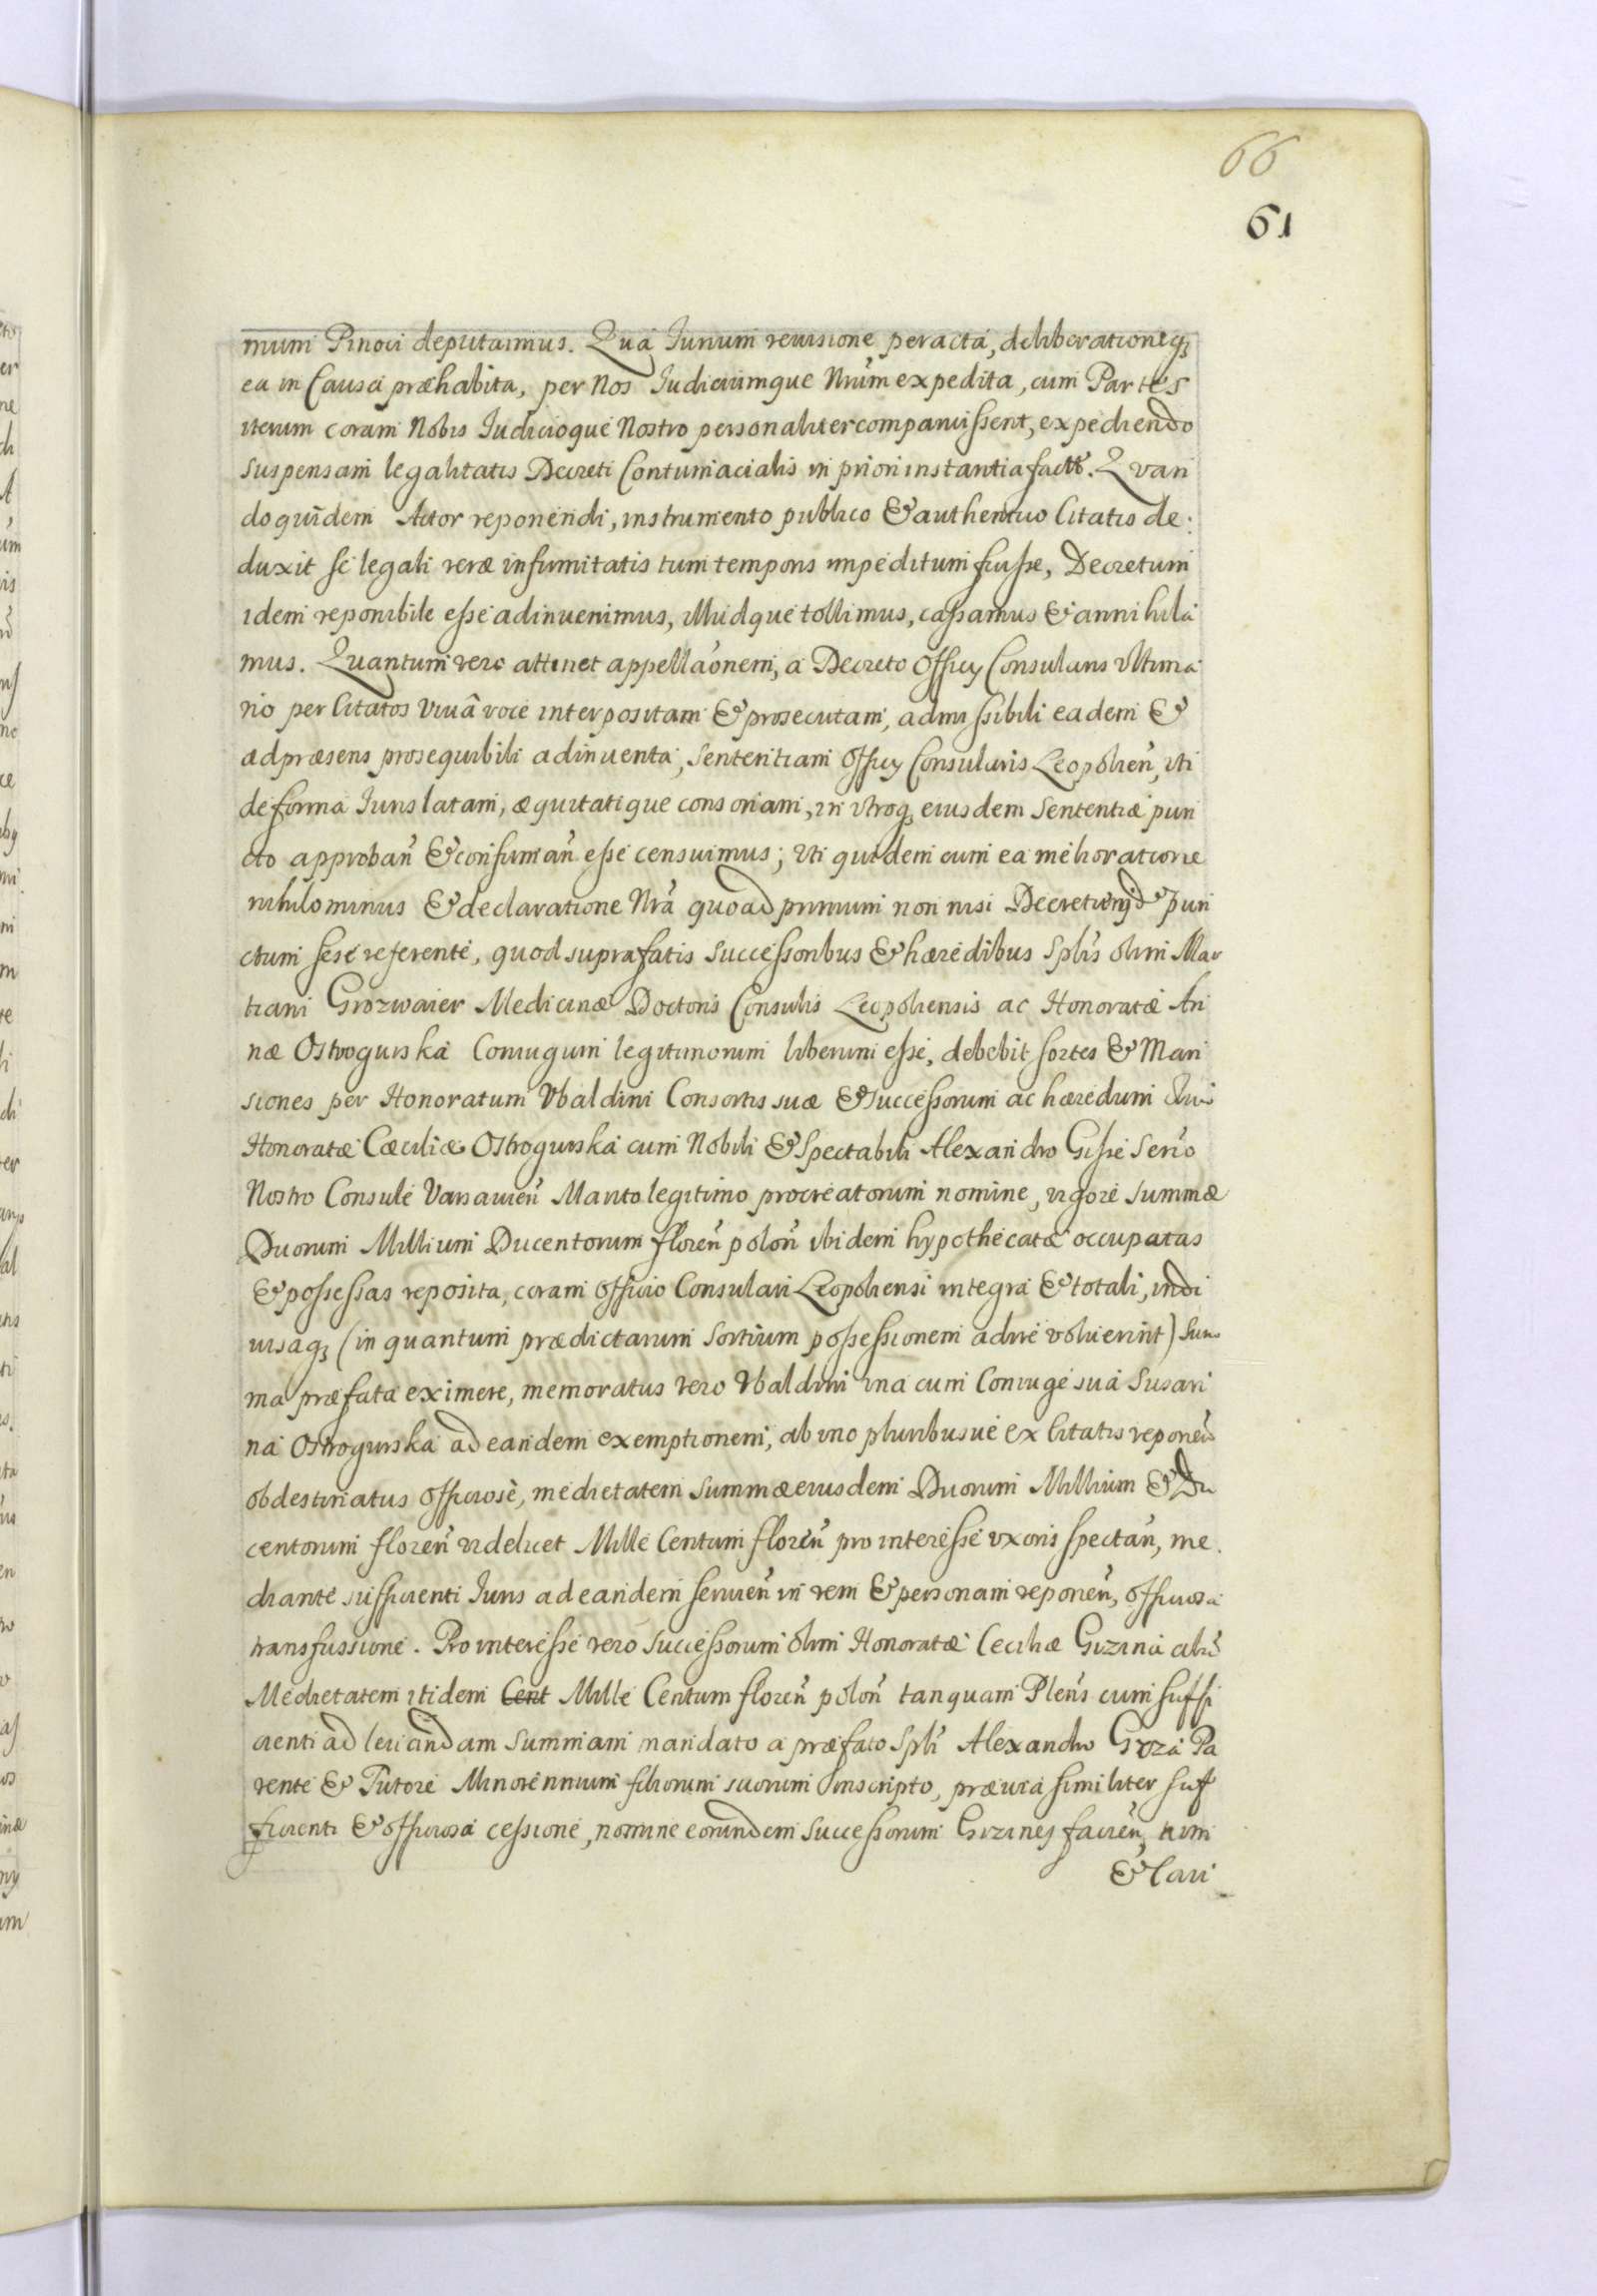 66
61
mum Pinoci deputaimus. Qua Iurium reuisione peracta, deliberationeq₃
ea in Causa præhabita, per Nos Iudiciumque Nrum̃ expedita, cum Partes
iterum coram Nobis Iudicioque Nostro personaliter comparuissent, expediendo
suspensam legalitatis Decreti Contumacialis in priori instantia factt̃. Quan
doquidem Actor reponendi, instrumento publico & authentico Citatis de:
duxit se legali veræ infirmitatis tum temporis impeditum fuisse, Decretum
idem reponibile esse adinuenimus, illudque tollimus, cassamus & annihila
mus. Quantum vero attinet appellãonem, a Decreto Officij Consularis vltima
rio per Citatos viuâ voce interpositam & prosecutam, admissibili eadem &
ad præsens prosequibili adinuenta, Sententiam Officij Consularis Leopolien̄, vti
de forma Iuris latam, æquitatique consonam, in vtroq₃ eiusdem Sententiæ pun
cto approban̄ & confirman̄ esse censuimus; vti quidem cum ea melioratione
nihilominus & declaratione Nrã quoad primum non nisi Decreti punctum
ctum sese referente, quod suprafatis Successoribus & hæredibus Splis̃ olim Mar
tiani Grozwaier Medicinæ Doctoris Consulis Leopoliensis ac Honoratæ An
næ Ostrogurska Coniugum legitimorum liberum esse, debebit sortes & Man
siones per Honoratum Vbaldini Consortis suæ & Successorum ac hæredum olim
Honoratæ Cæciliæ Ostrogurska cum Nobili & Spectabili Alexandro Gisse Serũo
Nostro Consule Varsauien̄ Marito legitimo procreatorum nomine, vigore Summæ
Duorum Millium Ducentorum floren̄ polon̄ ibidem hypothecatæ occupatas
& possessas reposita, coram Officio Consulari Leopoliensi integra & totali, indi
uisaq₃ (in quantum prædictarum Sortium possessionem adire voluerint) Sum
ma præfata eximere, memoratus vero Vbaldini vna cum Coniuge sua Susan
na Ostrogurska ad eandem exemptionem, ab vno pluribusue ex Citatis reponen̄
obdestinatus officiosè, medietatem Summæ eiusdem Duorum Millium & Du
centorum floren̄ videlicet Mille Centum floren̄ pro interesse vxoris spectan̄, me.
diante sufficienti Iuris ad eandem seruien̄ in rem & personam reponen̄, officiosa
transfussione. Pro interesse vero Successorum olim Honoratæ Ceciliæ Gizina aliã
Medietatem itidem Cent Mille Centum floren̄ polon̄ tanquam Plen̄s cum suffi
cienti ad leuandam Summam mandato a præfato Spli Alexandro Giza Pa
rente & Tutore Minorennium filiorum suorum inscripto, præuia similiter suf
ficienti & officiosa cessione, nomine eorundem Successorum Gizinej facien̄, tum
& Caui